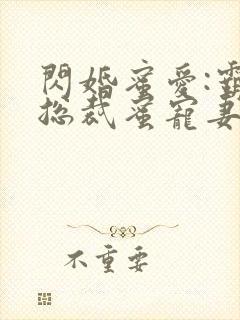 閃婚蜜愛:
總裁蜜寵妻
不重要